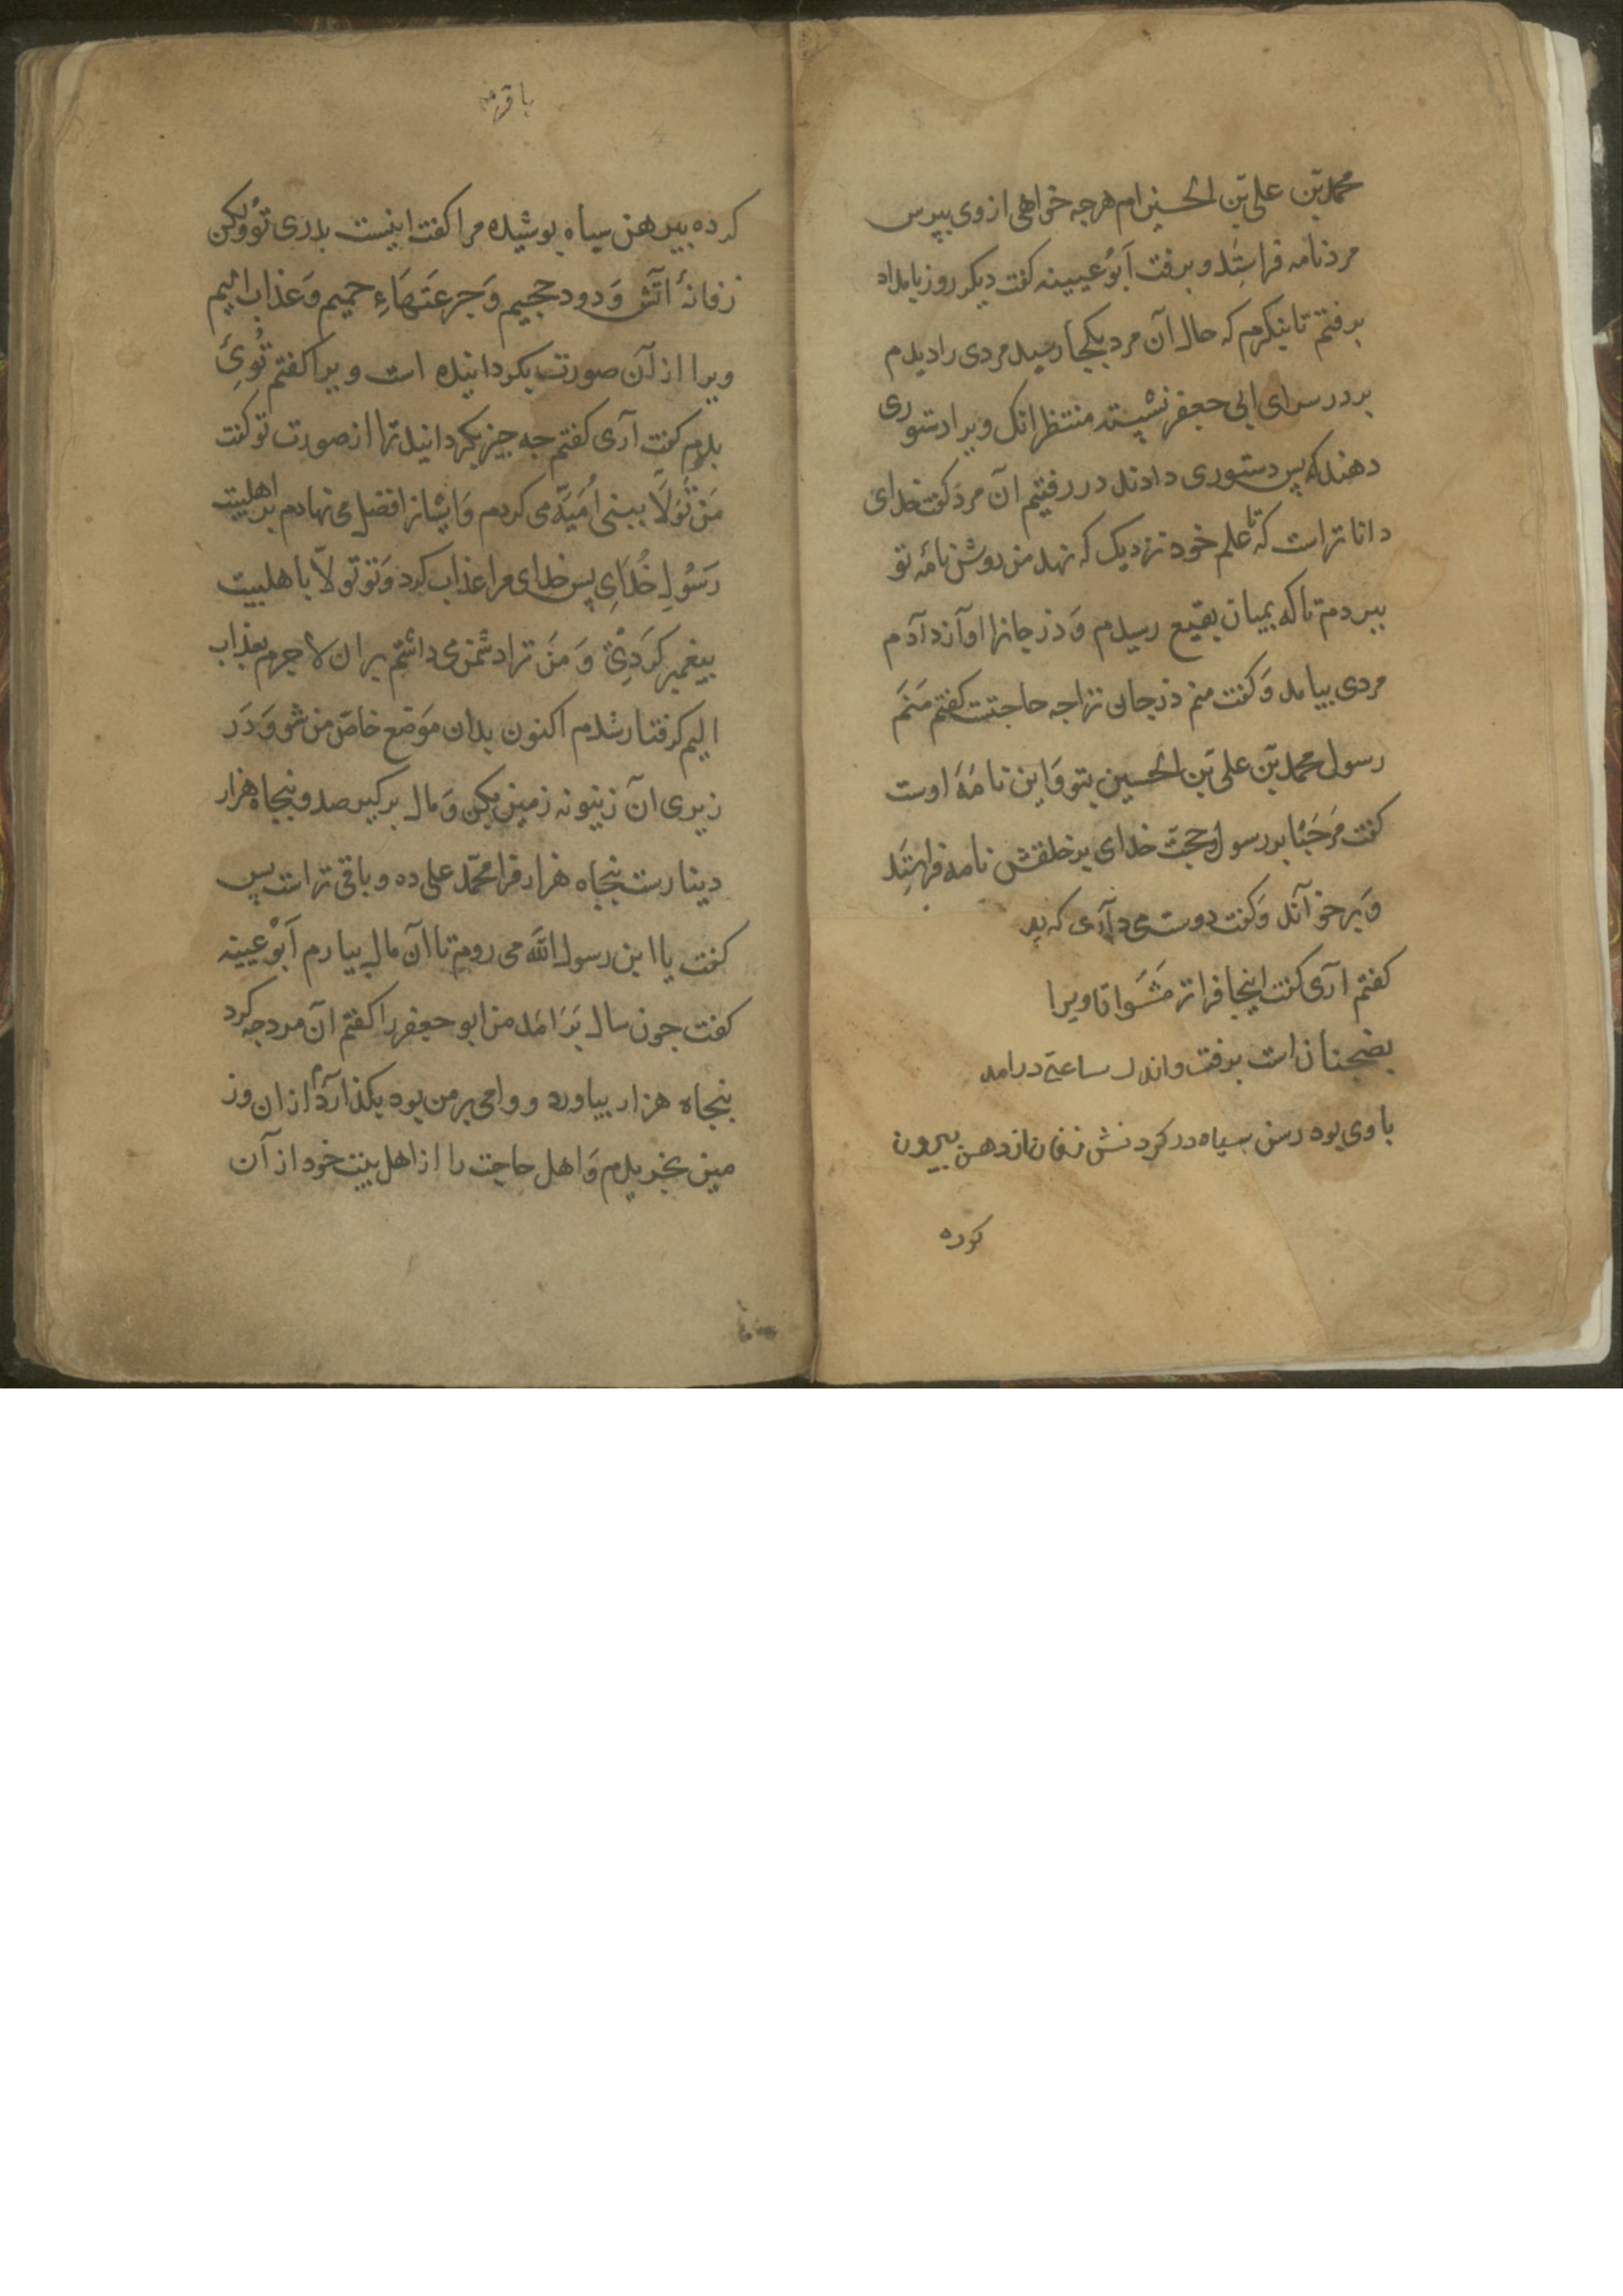 محمد بن علی بن الحسین ام هرجه خواهی از وی ببرس
مرد نامه فراستد و برفت ابوعیینه کفت دیکر روز بامداد
برفتم تا بنکرم که حال آن مرد بکجا رسید مردی را دیدم
بر در سرای ابی جعفر نشسته منتظر انک ویرا دستوری
دهند که پس دستوری دادند در رفتیم آن مرد کفت خدای
داناتر است که تا علم خود نزدیک که نهد من دوش نامه تو
ببردم تا که بمیان بقیع رسیدم وَ ذرجانرا اواز دادم
مردی بیامد وَ کفت منم ذرجان ترا جه حاجتست کفتم مَنَم
رسول محمد بن علی بن الحسین بتو وَ این نامۀ اوست
کفت مَرحَبًا بر رسول و حجت خدای بر خلقش نامه فراستَد
وَ برخواند وَ کفت دوست می داری که بدر
کفتم اری کفت اینجا فراتر مَشَو تا ویرا
بضجنان است برفت و اندک ساعتی درامد
با وی بود رسن سیاه در کردنش زفان از دهن بیرون
کرده
باقر
کرده بیرهن سیاه بوشیده مرا کفت اینست بدری تو وَلکن
زفانۀ اتش وَ دود جحیم وَ جرعَتهَاءِ حمیم وَ عذاب الیم
ویرا از آن صورت بکردانیده است ویرا کفتم تُوئی
بدرم کفت آری کفتم جه جیز بکردانید ترا از صورت تو کفت
مَن تَوَلّا ببنی اُمَیّه می کردم وَ ایشانرا فضل می نهادم بر اهلبیت
رَسُولِ خُدَایِ پس خدای مرا عذاب کرد وَ تو تولّا با هلبیت
بیغمبر کَردِیْ وَ مَن ترا دشمن می داشتم بر ان لاجرم بعذاب
الیم کرفتار شدم اکنون بدان مَوضع خاصّ من شو وَ دَر
زیری آن زیتونه زمین بکن وَ مال برکیر صد و بنجاه هزار
دینارست بنجاه هزار فرا محمّد علی ده و باقی تراست پس
کفت یا ابن رسول الله می روم تا ان مال بیارم اَبوْعیینه
کفت جون سال بَرَامَد من ابو جعفر را کفتم ان مرد جه کرد
بنجاه هزار بیاورد و وامی بر من بود بکذاردم از ان وز
مین بخریدم وَ اهل حاجت را از اهل بیت خود از آن